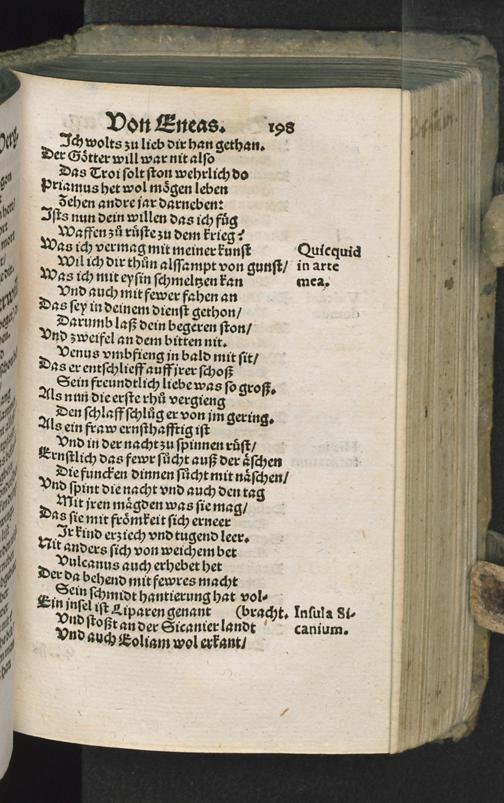 Von Eneas. 198
Ich wolts zu lieb dir han gethan.
Der Götter will war nit also
Das Troi solt ston wehrlich do
Priamus het wol mögen leben
Zehen andre jar darneben:
Ists nun dein willen das ich füg
Waffen zů růste zu dem krieg?
Was ich vermag mit meiner kunst
Quicquid
Wil ich dir thůn allsampt von gunst/
in arte
Was ich mit eysin schmeltzen kan
mea.
Vnd auch mit fewer fahen an
Das sey in deinem dienst gethon/
Darumb laß dein begeren ston/
Vnd zweifel an dem bitten nit.
Venus vmbfieng in bald mit sit/
Das er entschlieff auff jrer schoß
Sein freundtlich liebe was so groß.
Als nun die erste rhů vergieng
Den schlaff schlůg er von jm gering.
Als ein fraw ernsthafftig ist
Vnd in der nacht zu spinnen rüst/
Ernstlich das fewr sůcht auß der äschen
Die funcken dinnen sůcht mit näschen/
Vnd spint die nacht vnd auch den tag
Mit jren mägden was sie mag/
Das sie mit frömkeit sich erneer
Ir kind erziech vnd tugend leer.
Nit anders sich von weichem bet
Vulcanus auch erhebet het
Der da behend mit fewres macht
Sein schmidt hantierung hat vol-
Ein jnsel ist Liparen genant (bracht.
Insula Si-
Vnd stoßt an der Sicanier landt
canium.
Vnd auch Eoliam wol erkant/